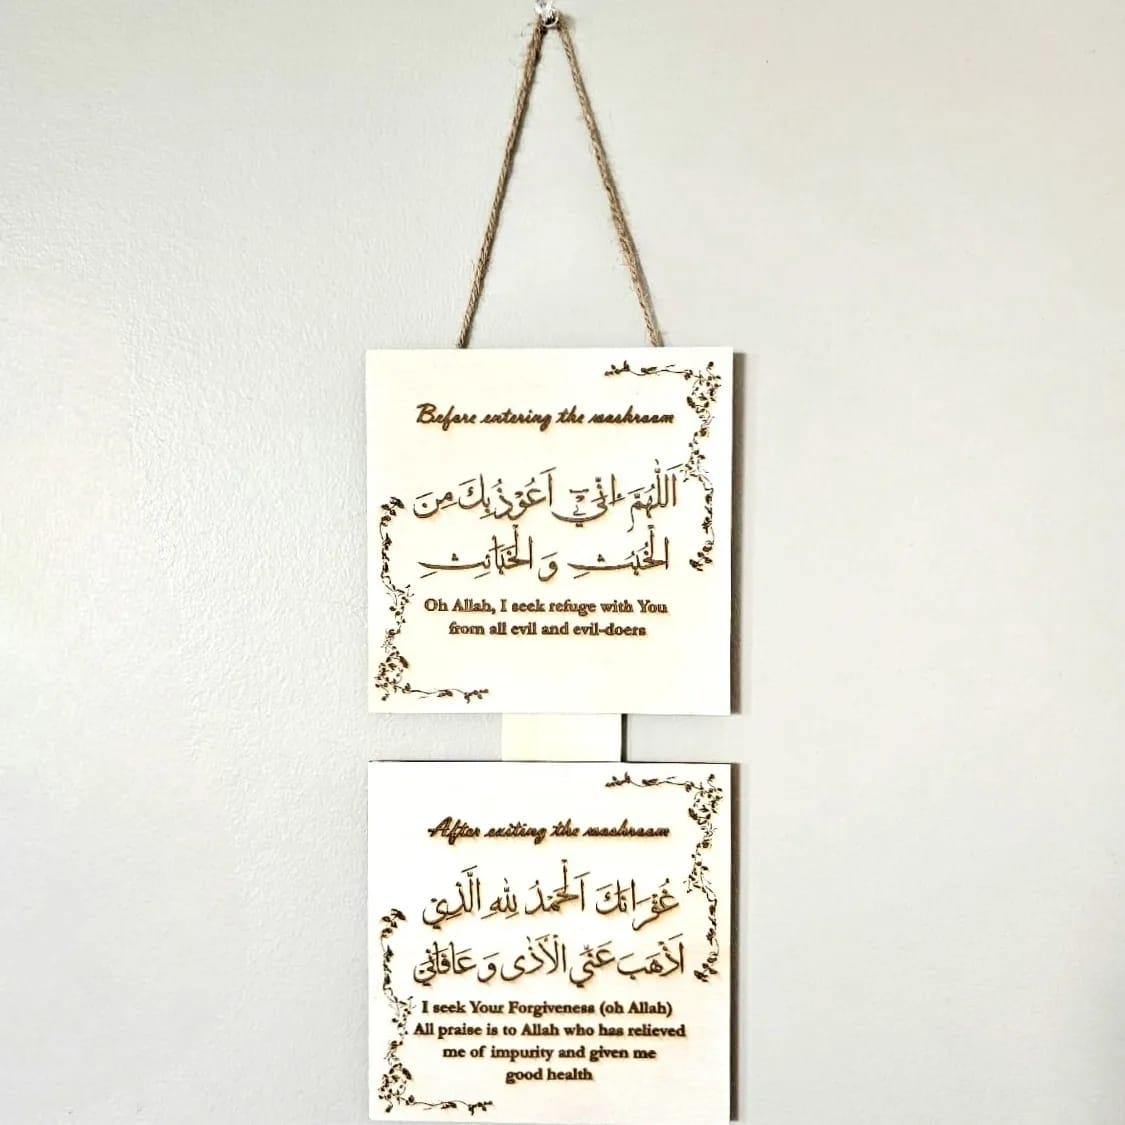 Before entering the washroom
اَللّٰهُمَّ اِنِّيْٓ اَعُوْذُ بِكَ مِنَ
الْخُبُثِ وَ الْخَبَائِثِ
Oh Allah, I seek refuge with You
from all evil and evil-doers
After exiting the washroom
غُفْرَانَكَ اَلْحَمْدُ لِلّٰهِ الَّذِيْ
اَذْهَبَ عَنِّي الْاَذٰى وَ عَافَانِيْ
I seek Your Forgiveness (oh Allah)
All praise is to Allah who has relieved
me of impurity and given me
good health